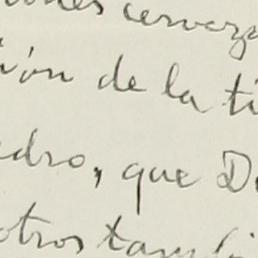 cerveza
ión de la ti
edro, que D
otros tambi